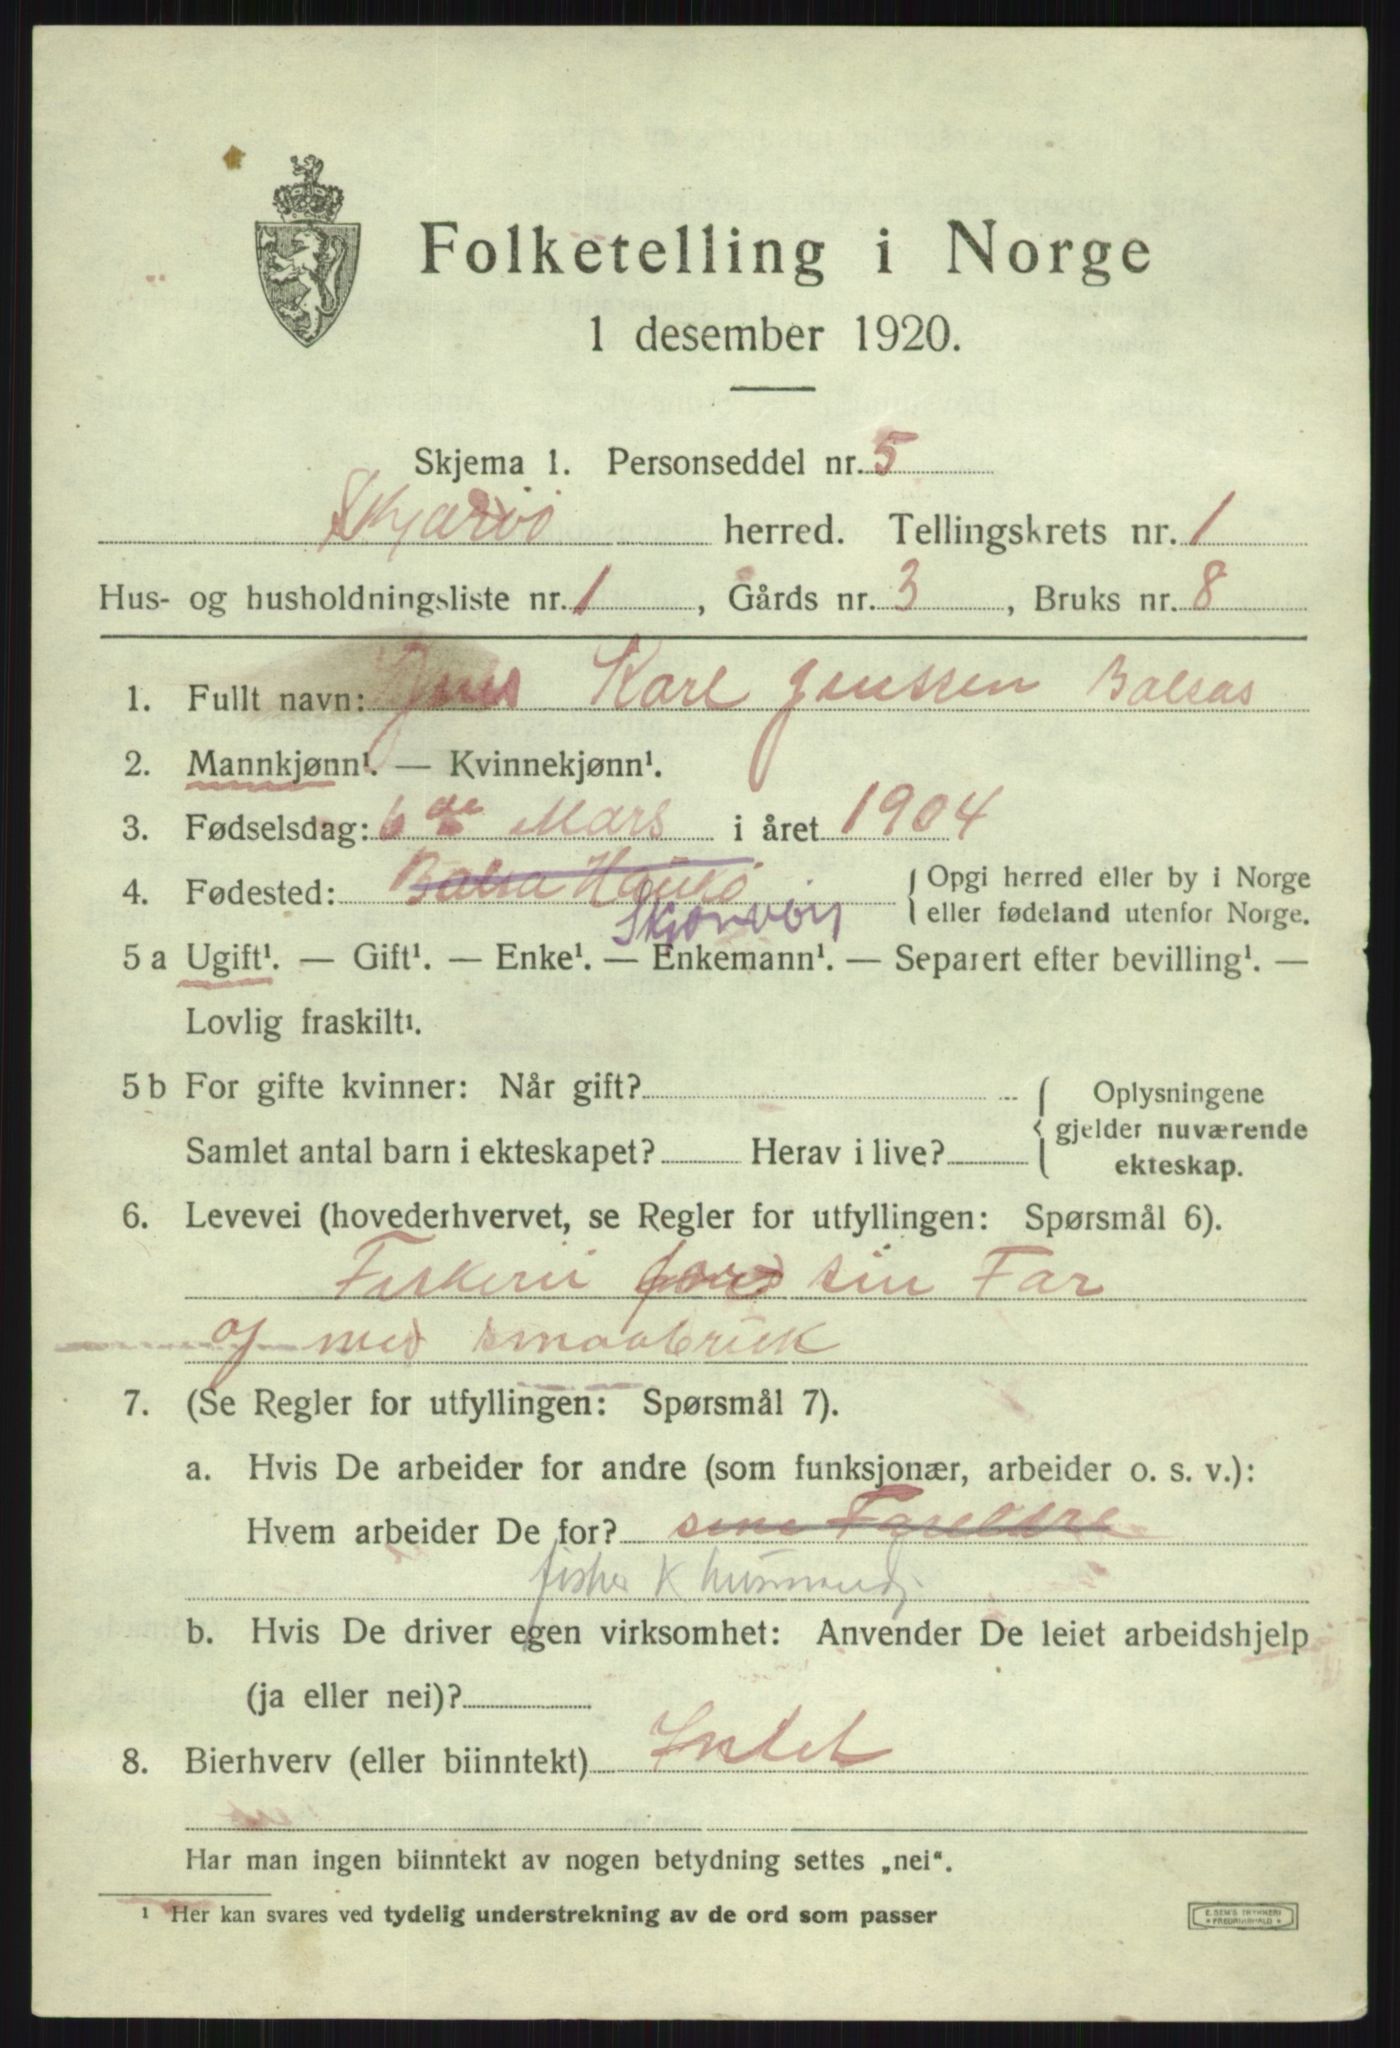 Folketelling i Norge
1 desember 1920.
Skjema 1. Personseddel nr. 5
Skjærvö herred. Tellingskrets nr. 1
Hus- og husholdningsliste nr. 1, Gårds nr. 3, Bruks nr. 8
1. Fullt navn: Jens Karl Jenssen Balsas
2. Mannkjønn¹. — Kvinnekjønn¹.
3. Fødselsdag: 6 de Mars i året 1904
4. Fødested: Balsa Haukö { Opgi herred eller by i Norge
eller fødeland utenfor Norge.
Skjærvöy
5 a Ugift¹. — Gift¹. — Enke¹. — Enkemann¹. — Separert efter bevilling¹. —
Lovlig fraskilt¹.
5 b For gifte kvinner: Når gift? { Oplysningene
gjelder nuværende
ekteskap.
Samlet antal barn i ekteskapet? Herav i live?
6. Levevei (hovederhvervet, se Regler for utfyllingen: Spørsmål 6).
Fiskeri sin Far
og med smaabruk
7. (Se Regler for utfyllingen: Spørsmål 7).
a. Hvis De arbeider for andre (som funksjonær, arbeider o. s. v.):
Hvem arbeider De for? sine Foreldre
fisker K husmand
b. Hvis De driver egen virksomhet: Anvender De leiet arbeidshjelp
(ja eller nei)?
8. Bierhverv (eller biinntekt) Intet
Har man ingen biinntekt av nogen betydning settes „nei“.
¹ Her kan svares ved tydelig understrekning av de ord som passer
E. SEM'S TRYKKERI
FREDRIKSHALD